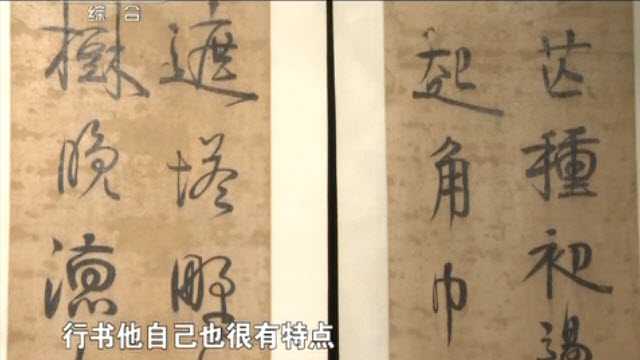 综合
芒種初
起角巾
遮塔野
樹晚
行书他自己也很有特点